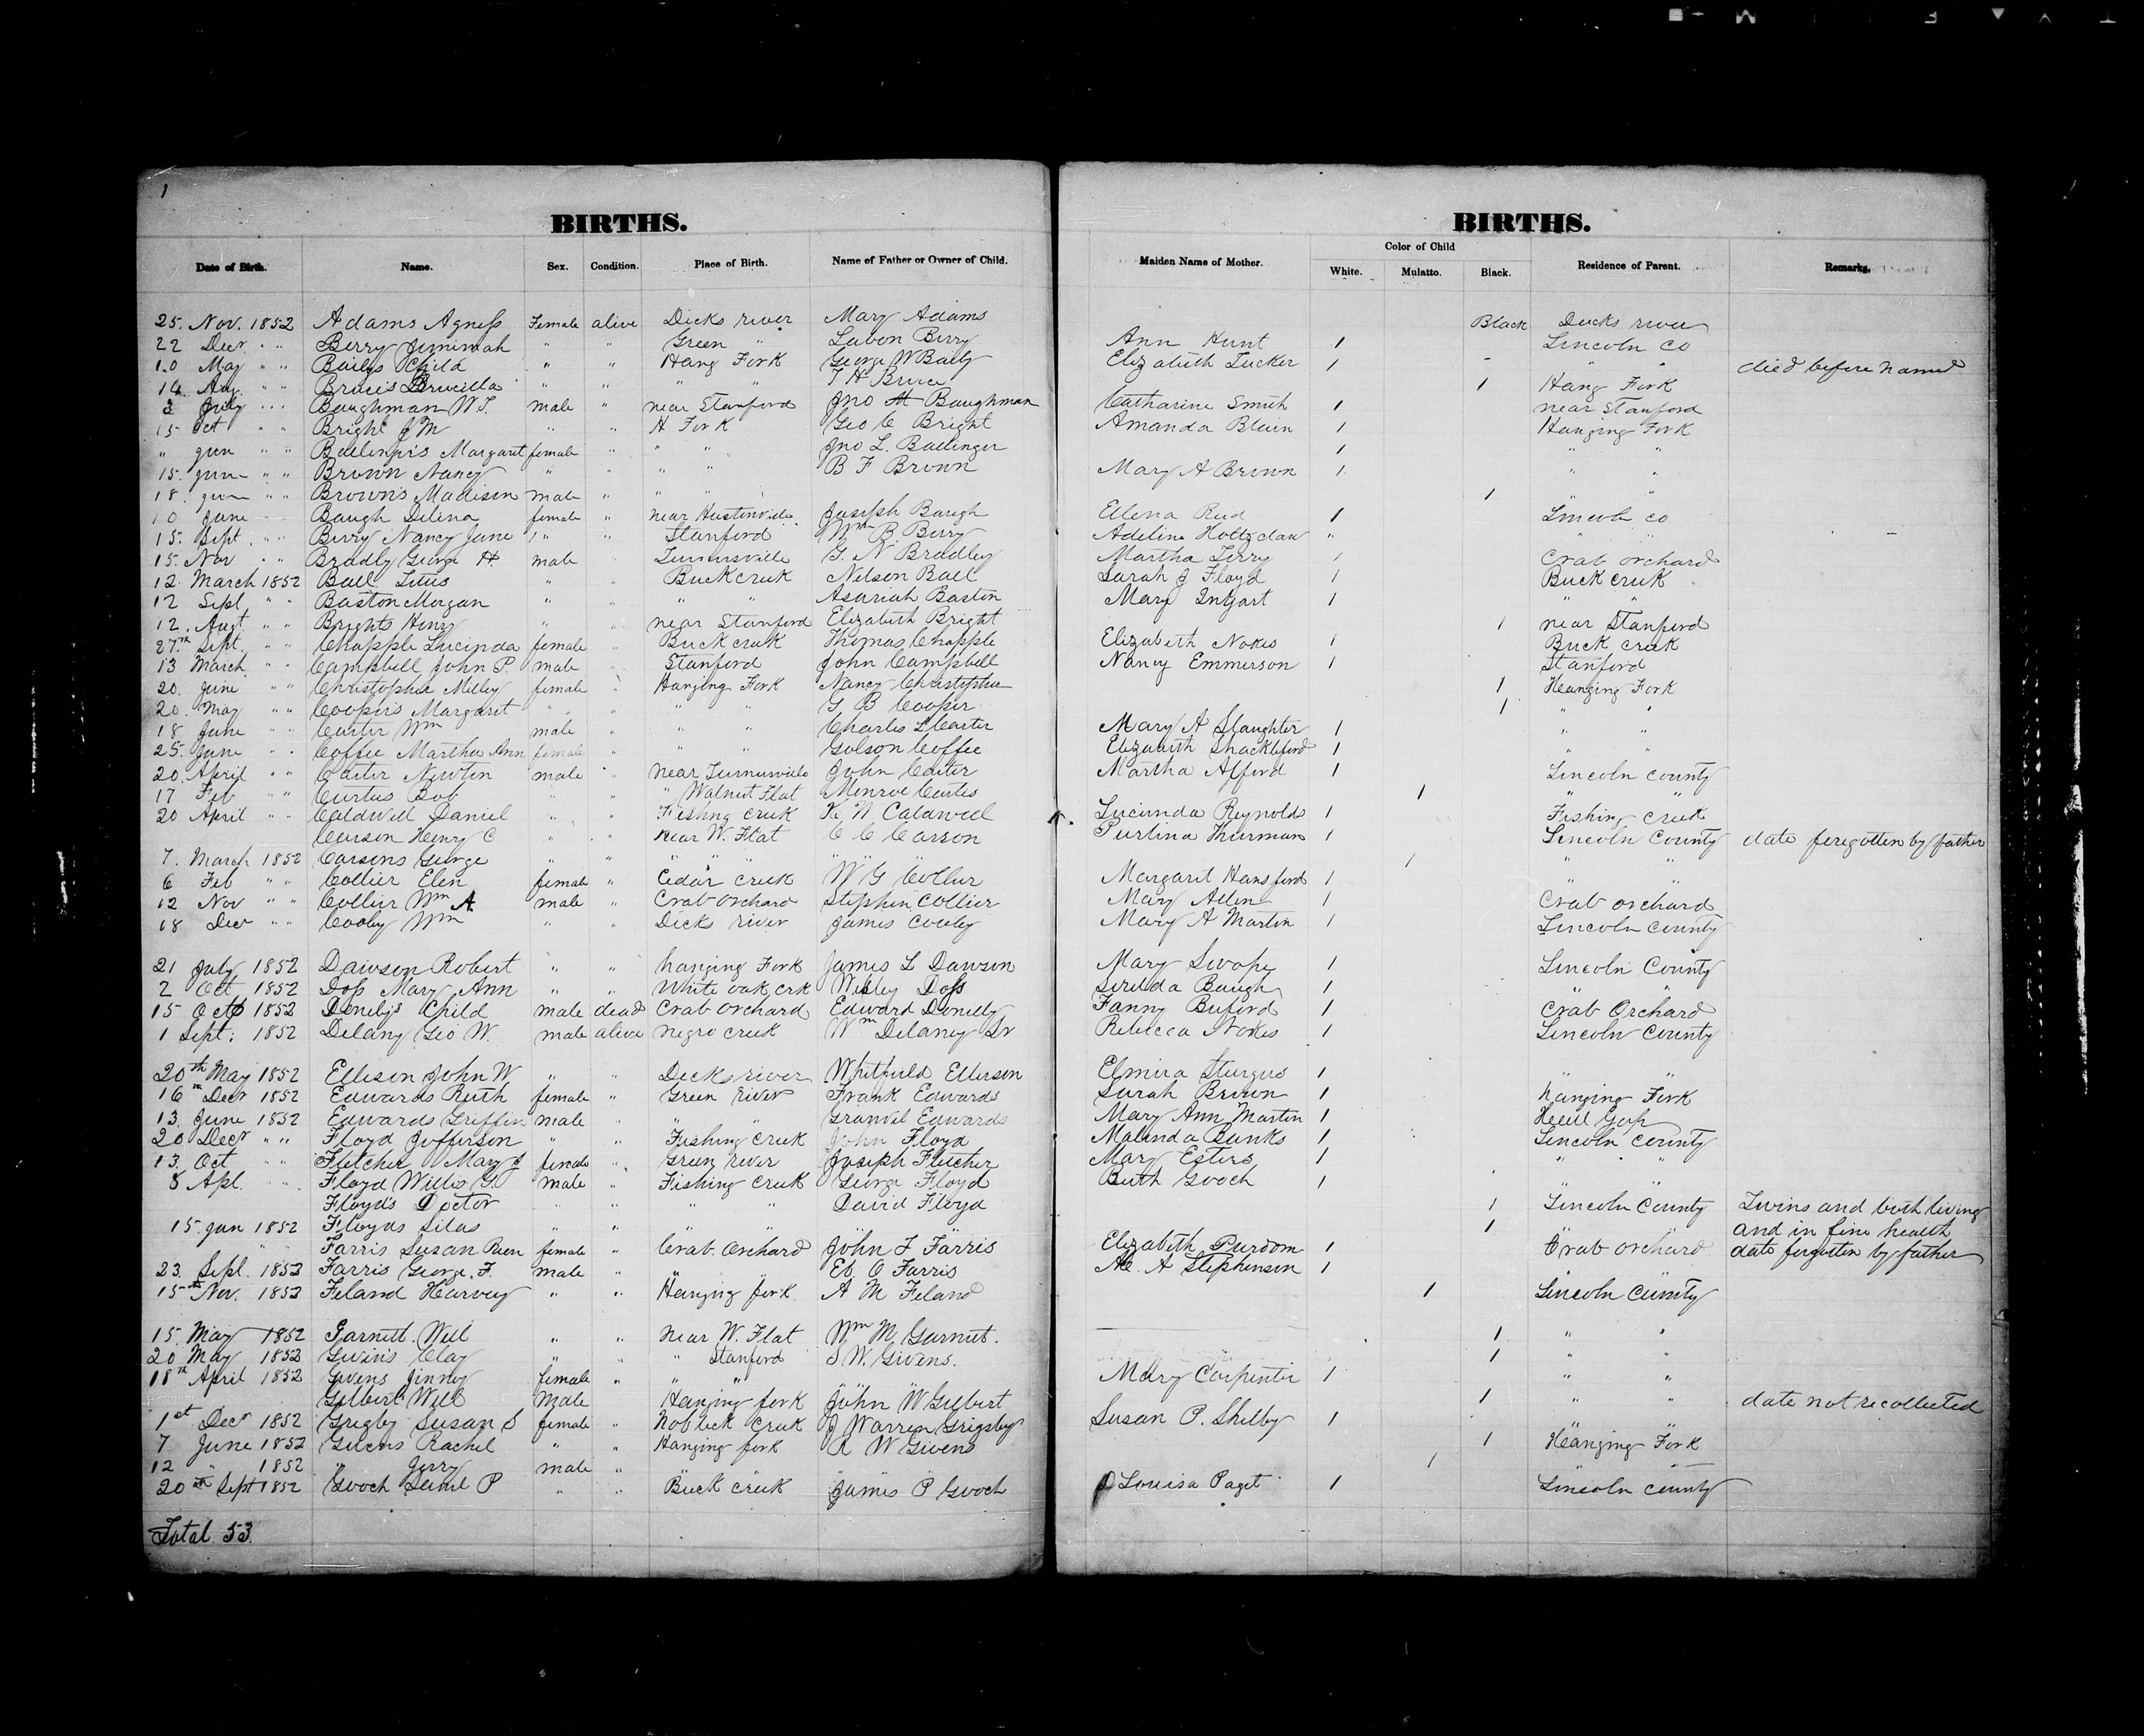 1
BIRTHS.
BIRTHS.
Date of Birth. Name. Sex. Condition. Place of Birth. Name of Father or Owner of Child. Maiden Name of Mother. Color of Child White. Mulatto. Black. Residence of Parent. Remarks.
25. Nov. 1852 Adams Agness Female alive Dicks river Mary Adams Black Dicks river
22 Decr " " Berry Jimimah " " Green " Labon Berry Ann Hunt 1 Lincoln Co
10 May " " Baily's Child " " Hang Fork George W Baily Elizabeth Tucker 1 " " died before named
14 Aug " " Bruce's Drucilla " " " " T H Bruce 1 Hang Fork
3 July " " Baughman W. T. male " near Stanford Jno M Baughman Catharine Smith 1 near Stanford
15 Oct " " Bright J M " " H Fork Geo C Bright Amanda Blain 1 Hanging Fork
" June " " Ballenger's Margaret female " " " Jno L. Ballinger 1 " "
15. June " " Brown Nancy " " " " B F Brown Mary A Brown 1 " "
18. June " " Brown's Madison male " " " 1 " "
10 June " " Baugh Delina female " near Hustonville Joseph Baugh Ellena Reid 1 Lincoln Co
15. Sept. " " Berry Nancy Jane " " Stanford Wm B. Berry Adeline Holtzclaw " " "
15. Nov " " Bradly George H. male Turnersville G. N Bradley Martha Terry 1 Crab orchard
12. March 1852 Ball Titus " " Buck creek Nelson Ball Sarah J Floyd 1 Buck creek
12 Sept " " Baston Morgan " " " " Asariah Baston Mary 1 " "
12. Augt " " Brights Henry " " near Stanford Elizabeth Bright 1 near Stanford
27th Sept. " " Chapple Lucinda female " Buck creek Thomas Chapple Elizabeth Nokes 1 Buck creek
13 March " " Campbell John P. male " Stanford John Campbell Nancy Emmerson 1 Stanford
20. June " " Christopher Milley female " Hanging Fork Nancy Christopher 1 Hanging Fork
20. May " " Cooper's Margaret " " " " G B Cooper 1 " "
18 June " " Carter Wm male " " Charles L Carter Mary A Slaughter 1 " "
25. June " " Coffee Martha Ann female " " Golson Coffee Elizabeth Shackleford 1 " "
20. April " " Carter Newton male " near Turnersville John Carter Martha Afford 1 Lincoln County
17 Feb " " Curtus Bob " " " Walnut Flat Monroe Curtis 1 " "
20 April " " Caldwell Daniel " " Fishing Creek K. N Caldwell Lucinda Reynolds 1 Fishing Creek
Carson Henry C " " near W. Flat C C Carson Purlina Thurman 1 Lincoln County date foregotten by father
7. March 1852 Carsons George " " " " " " " 1 " "
6 Feb " " Collier Elen female " Cedar Creek W G Collier Margaret Hansford 1 " "
12 Nov " " Collier Wm A male " Crab Orchard Stephen Collier Mary Allen 1 Crab Orchard
18 Dec " " Cooley Wm " " Dicks river James Cooley Mary A Martin 1 Lincoln County
21 July 1852 Dawson Robert " " hanging Fork James L Dawson Mary Swope 1 Lincoln County
2 Oct 1852 Doss Mary Ann " " White oak crk Wesley Doss Serilda Baugh 1 " "
15 Oct 1852 Donely's Child male dead Crab Orchard Edward Donelly Fanny Buford 1 Crab Orchard
1 Sept. 1852 Delany Geo W. male alive negro creek Wm Delaney Sr Rebecca Nokes 1 Lincoln County
20th May 1852 Ellison John W " " Dicks river Whitfield Ellison Elmira Sturgus 1 " "
16th Decr 1852 Edwards Ruth female " Green river Frank Edwards Sarah Brown 1 hanging Fork
13. June 1852 Edwards Griffin male " " " Granvil Edwards Mary Ann Martin 1 Gap
20 Decr " " Floyd Jefferson " " Fishing Creek John Floyd Malinda Banks 1 Lincoln County
13. Oct " " Fletcher Mary J female " Green river Joseph Fletcher Mary Esters 1 " "
8 Apl. " " Floyd Willis G. male " Fishing Creek George Floyd Ruth Gooch 1 " "
Floyd's Doctor " " " " David Floyd 1 Lincoln County Twins and both living
15. Jan 1852 Floyds Silas " " " " " " 1 " " and in fine health
Farris Susan Bien female " Crab. Orchard John F Farris Elizabeth Purdom 1 Crab orchard date forgotten by father
23. Sept. 1852 Farris George. F. male " " " Eb O Farris M. A Stephenson 1 " "
15th Nov. 1852 Feland Harvey " " Hanging fork A M Feland 1 Lincoln County
15. May 1852 Garnett Well " " near W. Flat Wm M Garnet. 1 " "
20 May 1852 Givin's Clay " " " Stanford S W. Givens. 1 " "
18th April 1852 Givens Jinney female " " " " Mary Carpenter 1 " "
Gilbert Will Male " Hanging fork John W Gilbert 1 " " date not recollected
1st Decr 1852 Grigby Susan S female " Noblick Creek J Warren Grigsby Susan P. Shelby 1 " "
7 June 1852 Givens Rachel " " Hanging fork R W Givens 1 Hanging Fork
12 " 1852 " Jerry male " " " " " 1 " "
20th Sept 1852 Gooch Saml P " " Buck creek James P Gooch Louisa Paget 1 Lincoln County
Total 53.